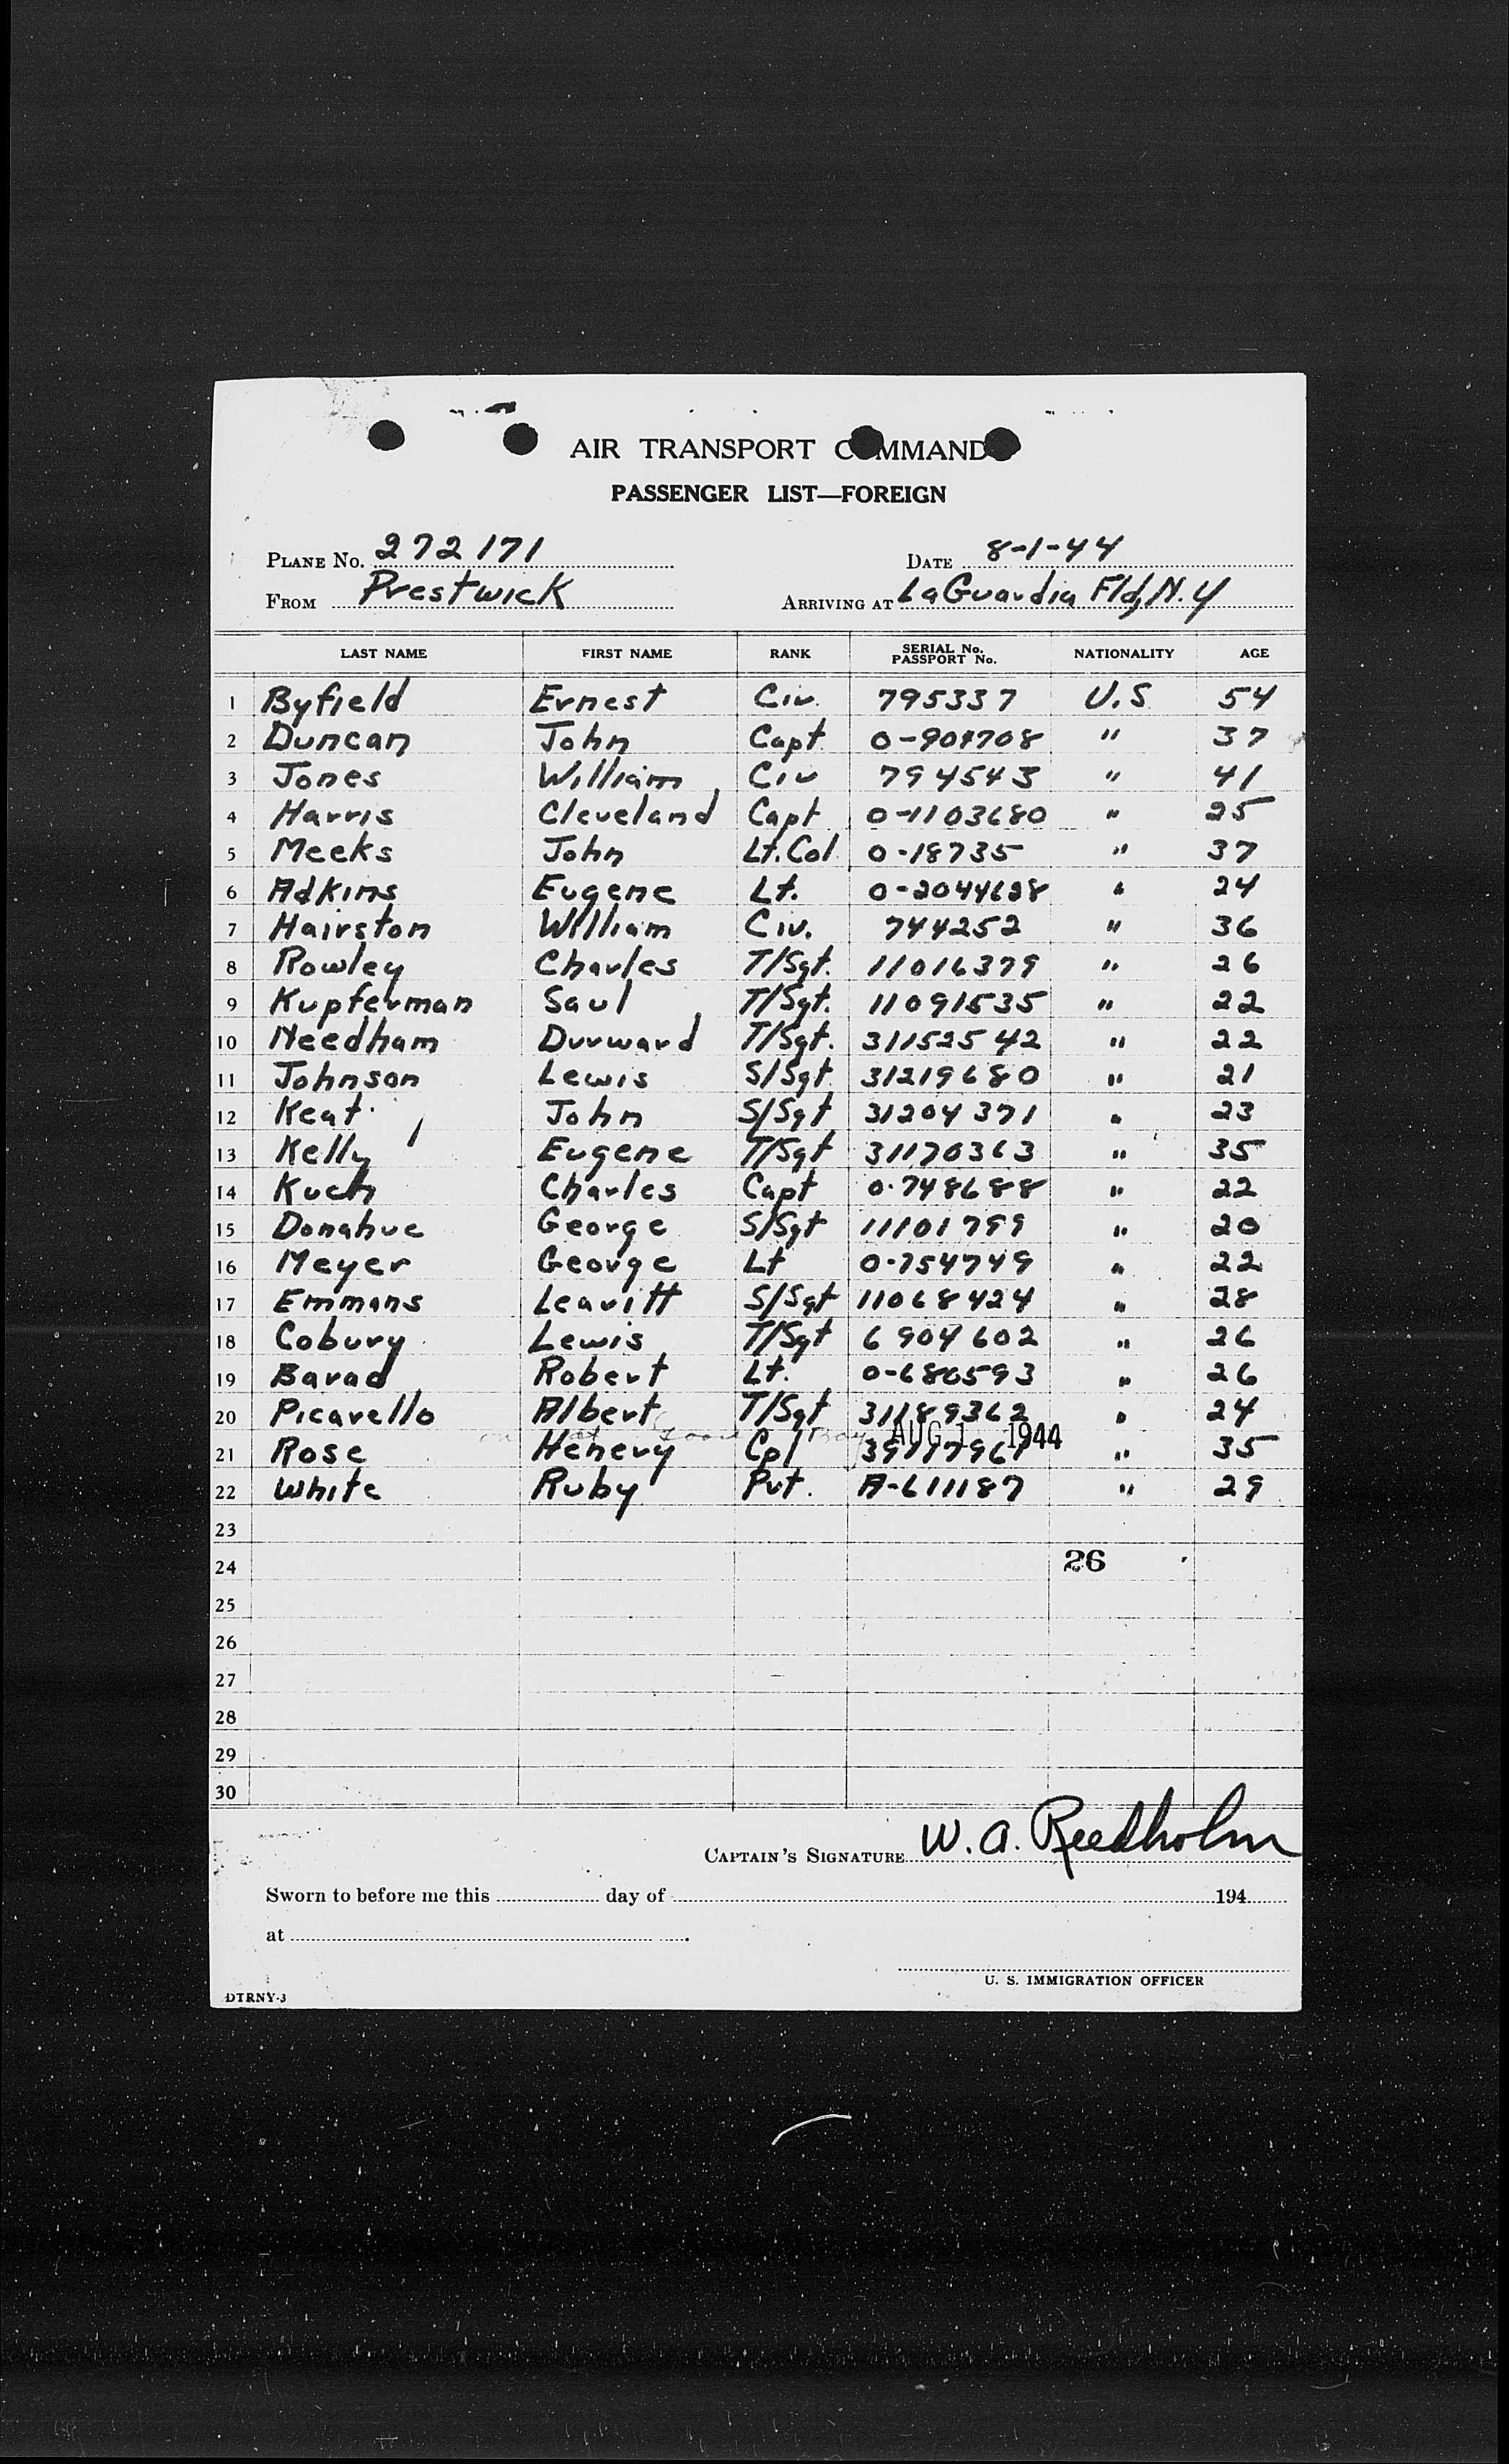 AIR TRANSPORT COMMAND
PASSENGER LIST—FOREIGN
PLANE No. 272171 DATE 8-1-44
FROM Prestwick ARRIVING AT LaGuardia Fld, N.Y
LAST NAME FIRST NAME RANK SERIAL No. PASSPORT No. NATIONALITY AGE
1 Byfield Ernest Civ. 795337 U.S. 54
2 Duncan John Capt " 37
3 Jones William Civ 794543 " 41
4 Harris Cleveland Capt 0-1103680 " 25
5 Meeks John Lt. Col. 0-18735 " 37
6 Adkins Eugene Lt. 0-2044628 " 24
7 Hairston William Civ. 744252 " 36
8 Rowley Charles T/Sgt. 11016379 " 26
9 Kupferman Saul T/Sgt. 11091535 " 22
10 Needham Durward T/Sgt. 31152542 " 22
11 Johnson Lewis S/Sgt 31219680 " 21
12 Keat John S/Sgt 31204371 " 23
13 Kelly Eugene T/Sgt 31170363 " 35
14 Kuch Charles Capt 0-748688 " 22
15 Donahue George S/Sgt 11101799 " 20
16 Meyer George Lt 0-754749 " 22
17 Emmons Leavitt S/Sgt 11068424 " 28
18 Coburg Lewis T/Sgt 6904602 " 26
19 Barad Robert Lt. 0-680593 " 26
20 Picarello Albert T/Sgt 31189362 " 24
AUG 1 1944
21 Rose Henery Cpl " 35
22 White Ruby Pvt. A-611187 " 29
23
24 26
25
26
27
28
29
30
CAPTAIN'S SIGNATURE W. A. Reedholm
Sworn to before me this day of 194
at
U. S. IMMIGRATION OFFICER
DTRNY-3